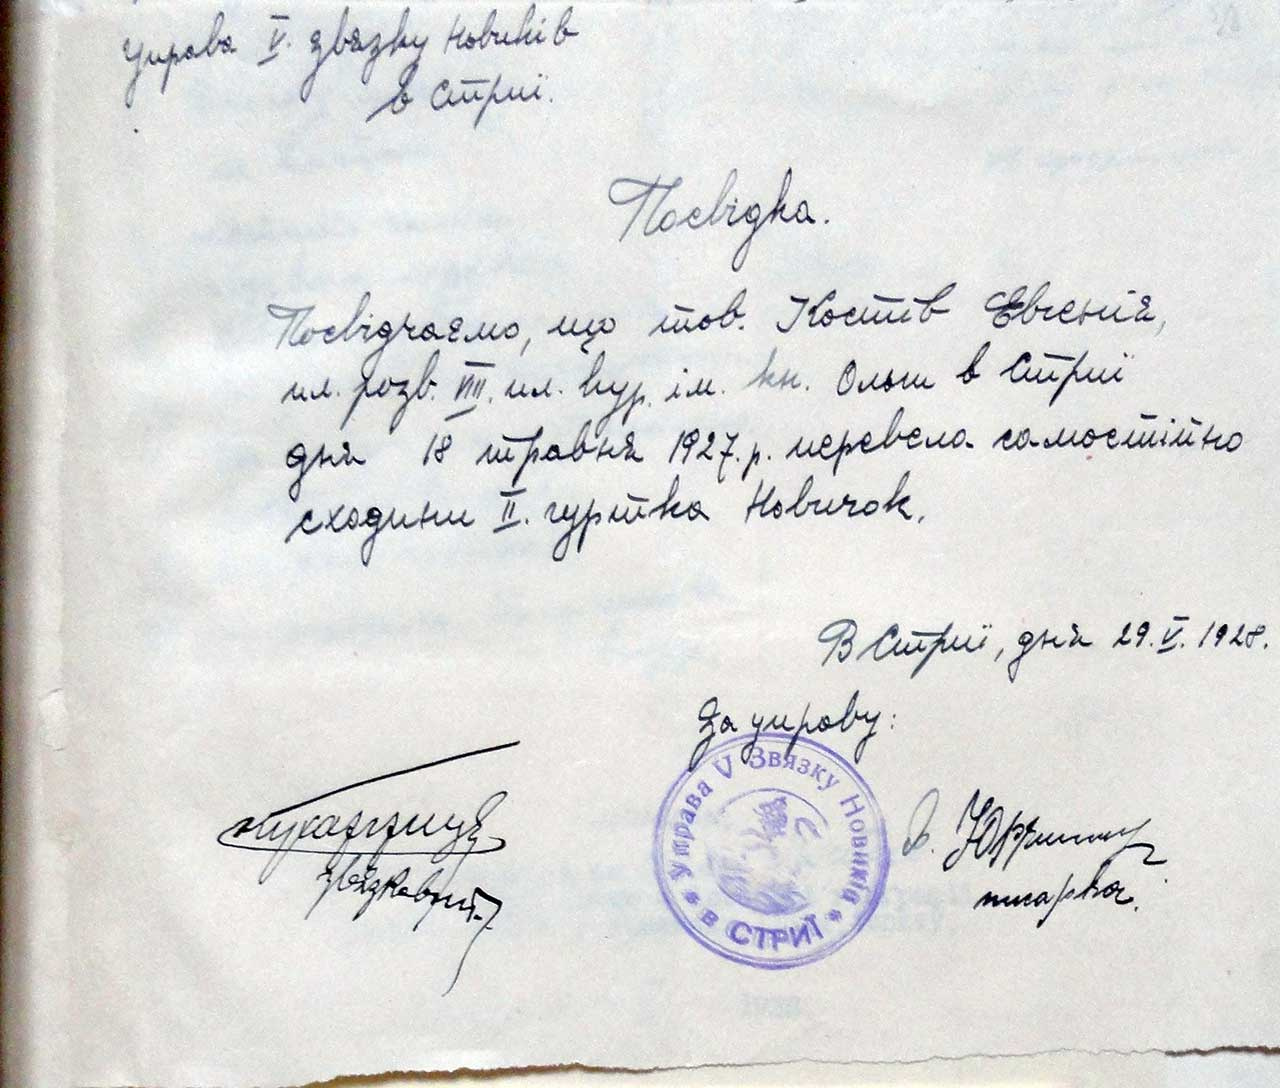 Управа V. звязку Новиків
в Стрию.
Посвідка.
Посвідчаємо, що тов. Костів Евгенія,
пл. розв. VIII. пл. кур. ім. кн. Ольги в Стрию
дня 18 травня 1927. р. перевела самостійно
сходини II. гуртка Новичок.
В Стрию, дня 29. V. 1928.
За управу:
Управа V Звязку Новиків
в СТРИЮ
звязковий
писарка.